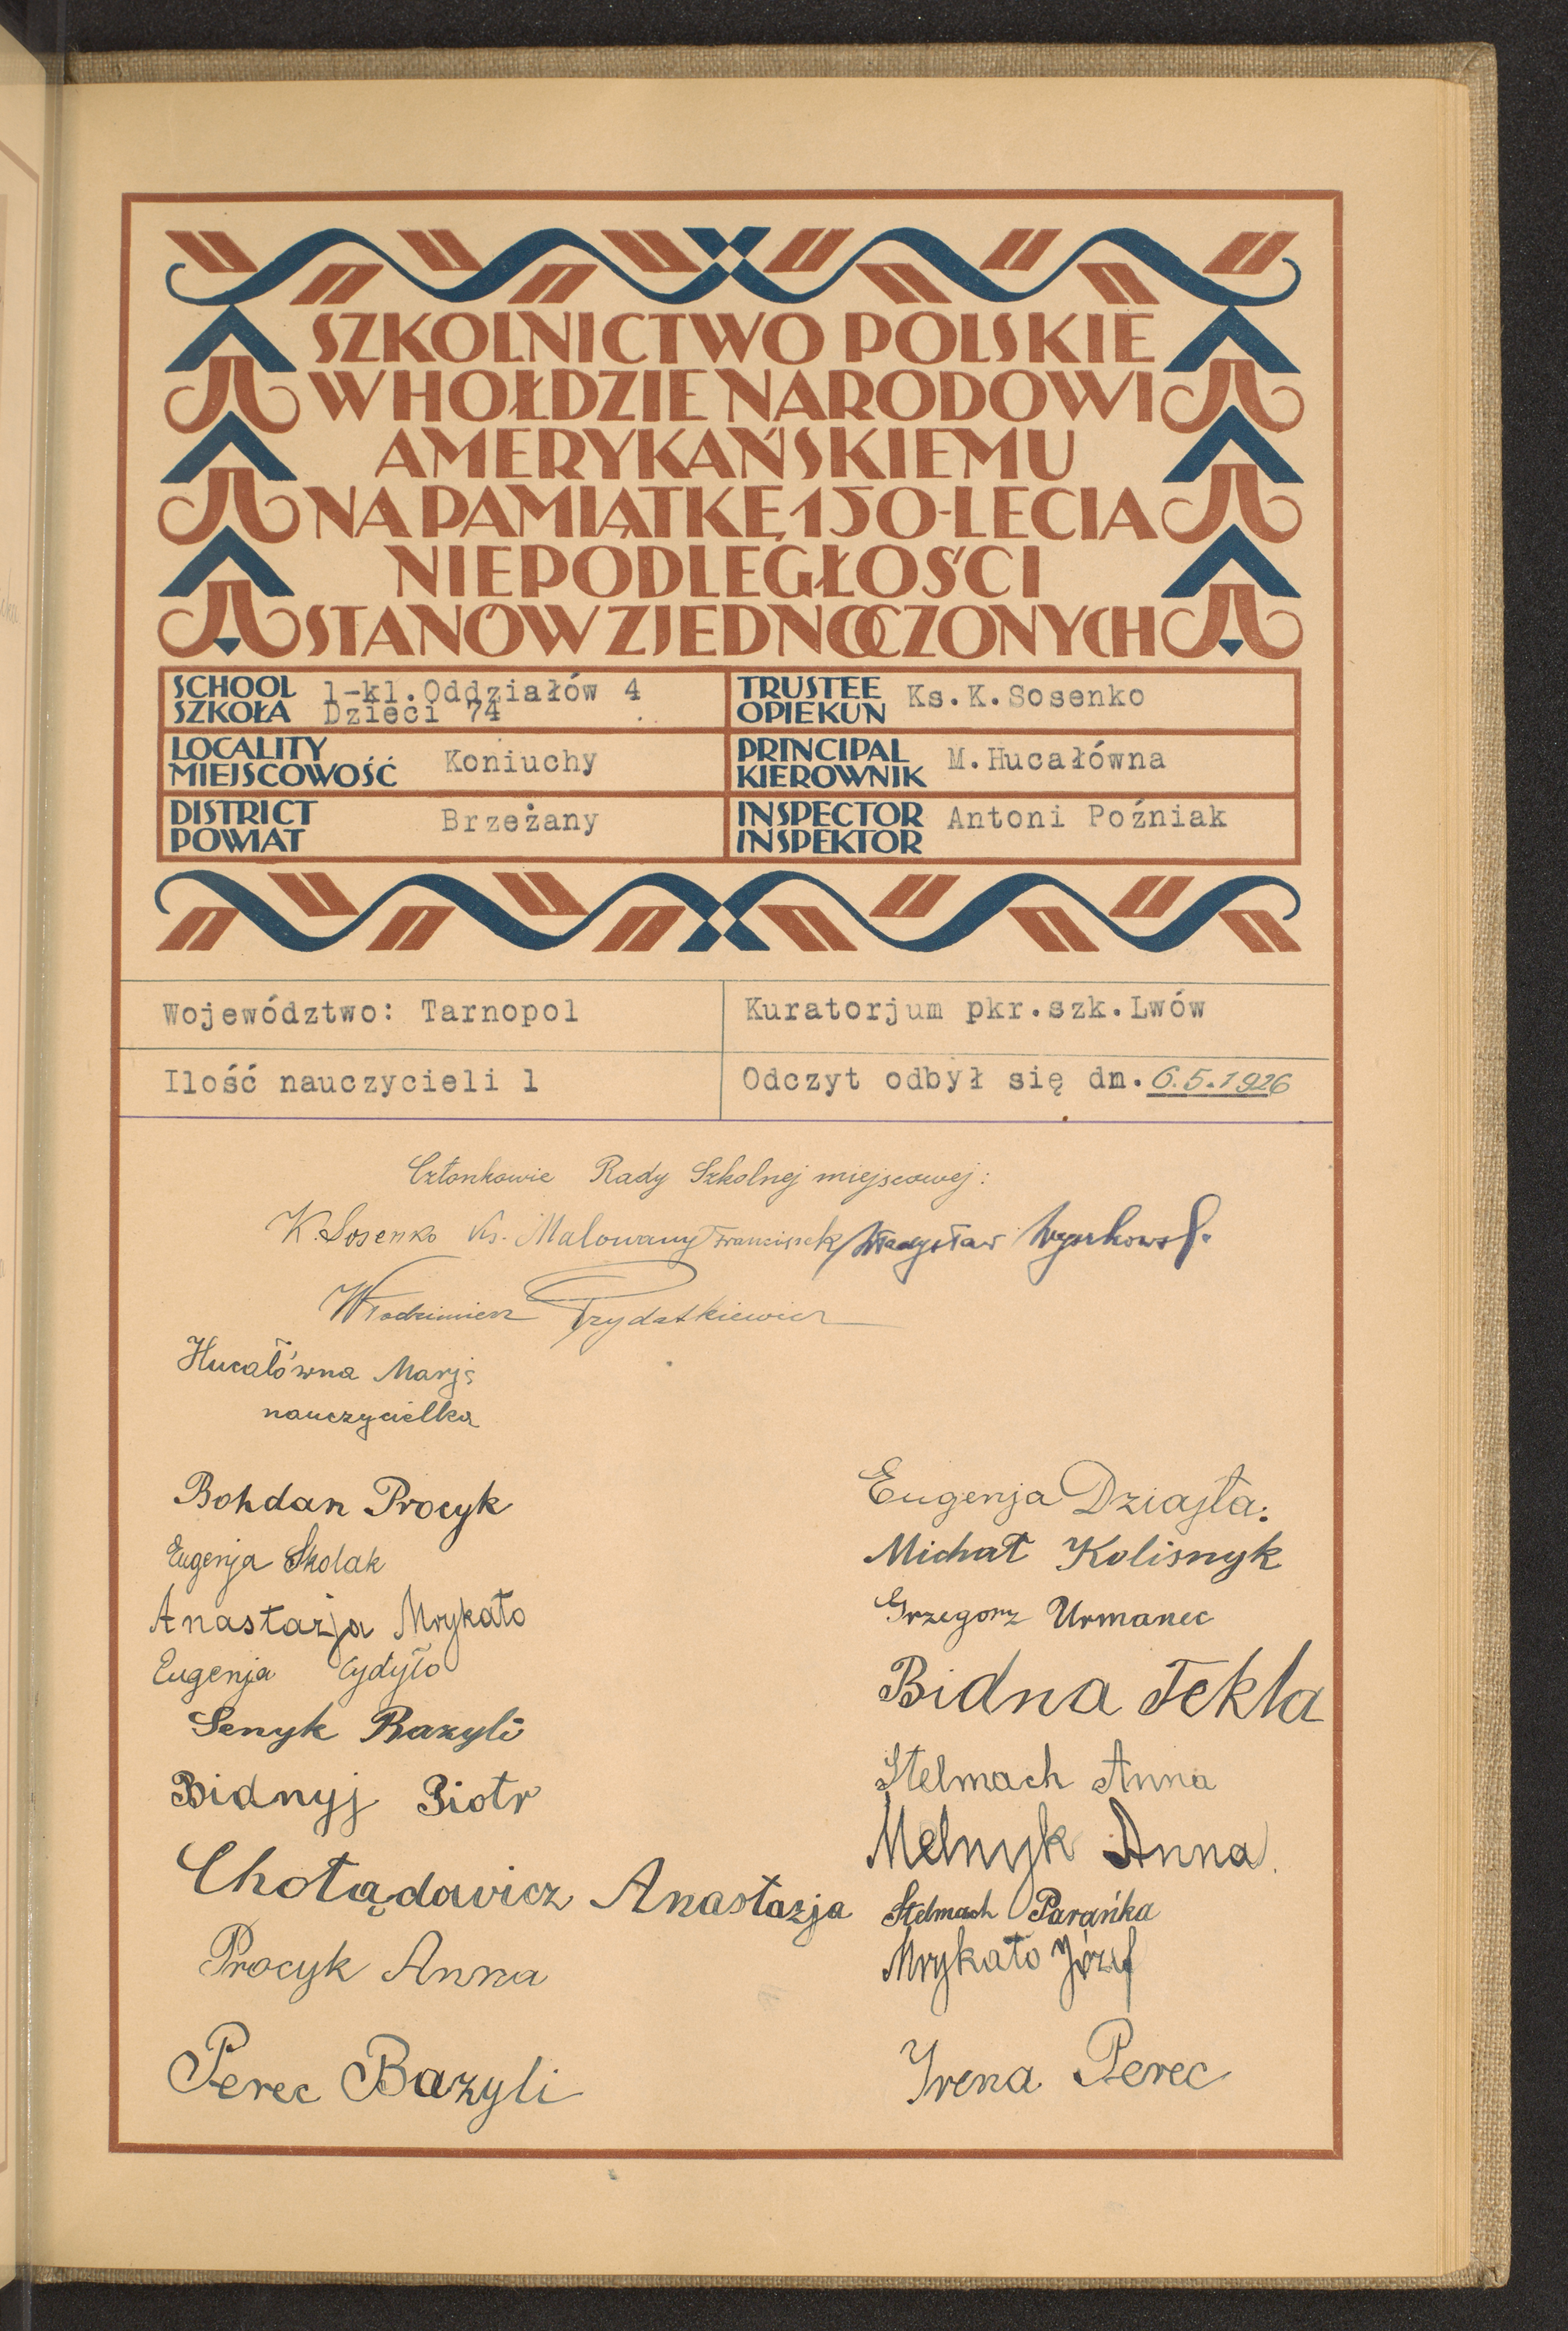 SZKOLNICTWO POLSKIE
W HOŁDZIE NARODOWI
AMERYKAŃSKIEMU
NA PAMIĄTKĘ 150-LECIA
NIEPODLEGŁOŚCI
STANÓW ZJEDNOCZONYCH
SCHOOL
SZKOŁA
1-kl.Oddziałów 4
Dzieci 74
TRUSTEE
OPIEKUN
Ks.K.Sosenko
LOCALITY
MIEJSCOWOŚĆ
Koniuchy
PRINCIPAL
KIEROWNIK
M.Hucałówna
DISTRICT
POWIAT
Brzeżany
INSPECTOR
INSPEKTOR
Antoni Poźniak
Województwo: Tarnopol
Kuratorjum pkr.szk.Lwów
Ilość nauczycieli 1
Odczyt odbył się dn. 6.5.1926
Członkowie Rady Szkolnej miejscowej:
K. Sosenko Ks. Malowany Franciszek Władysław
Włodzimierz Prydatkiewicz
Hucałówna Marja
nauczycielka
Bohdan Procyk
Eugenja Skolak
Anastazja Mrykało
Eugenja Cydyło
Senyk Bazyli
Bidnyj Piotr
Chołądowicz Anastazja
Procyk Anna
Perec Bazyli
Eugenja Dziajła.
Michał Kolisnyk
Grzegorz Urmanec
Bidna Tekla
Stelmach Anna
Melnyk Anna.
Stelmach Parańka
Mrykało Józef
Yrena Perec